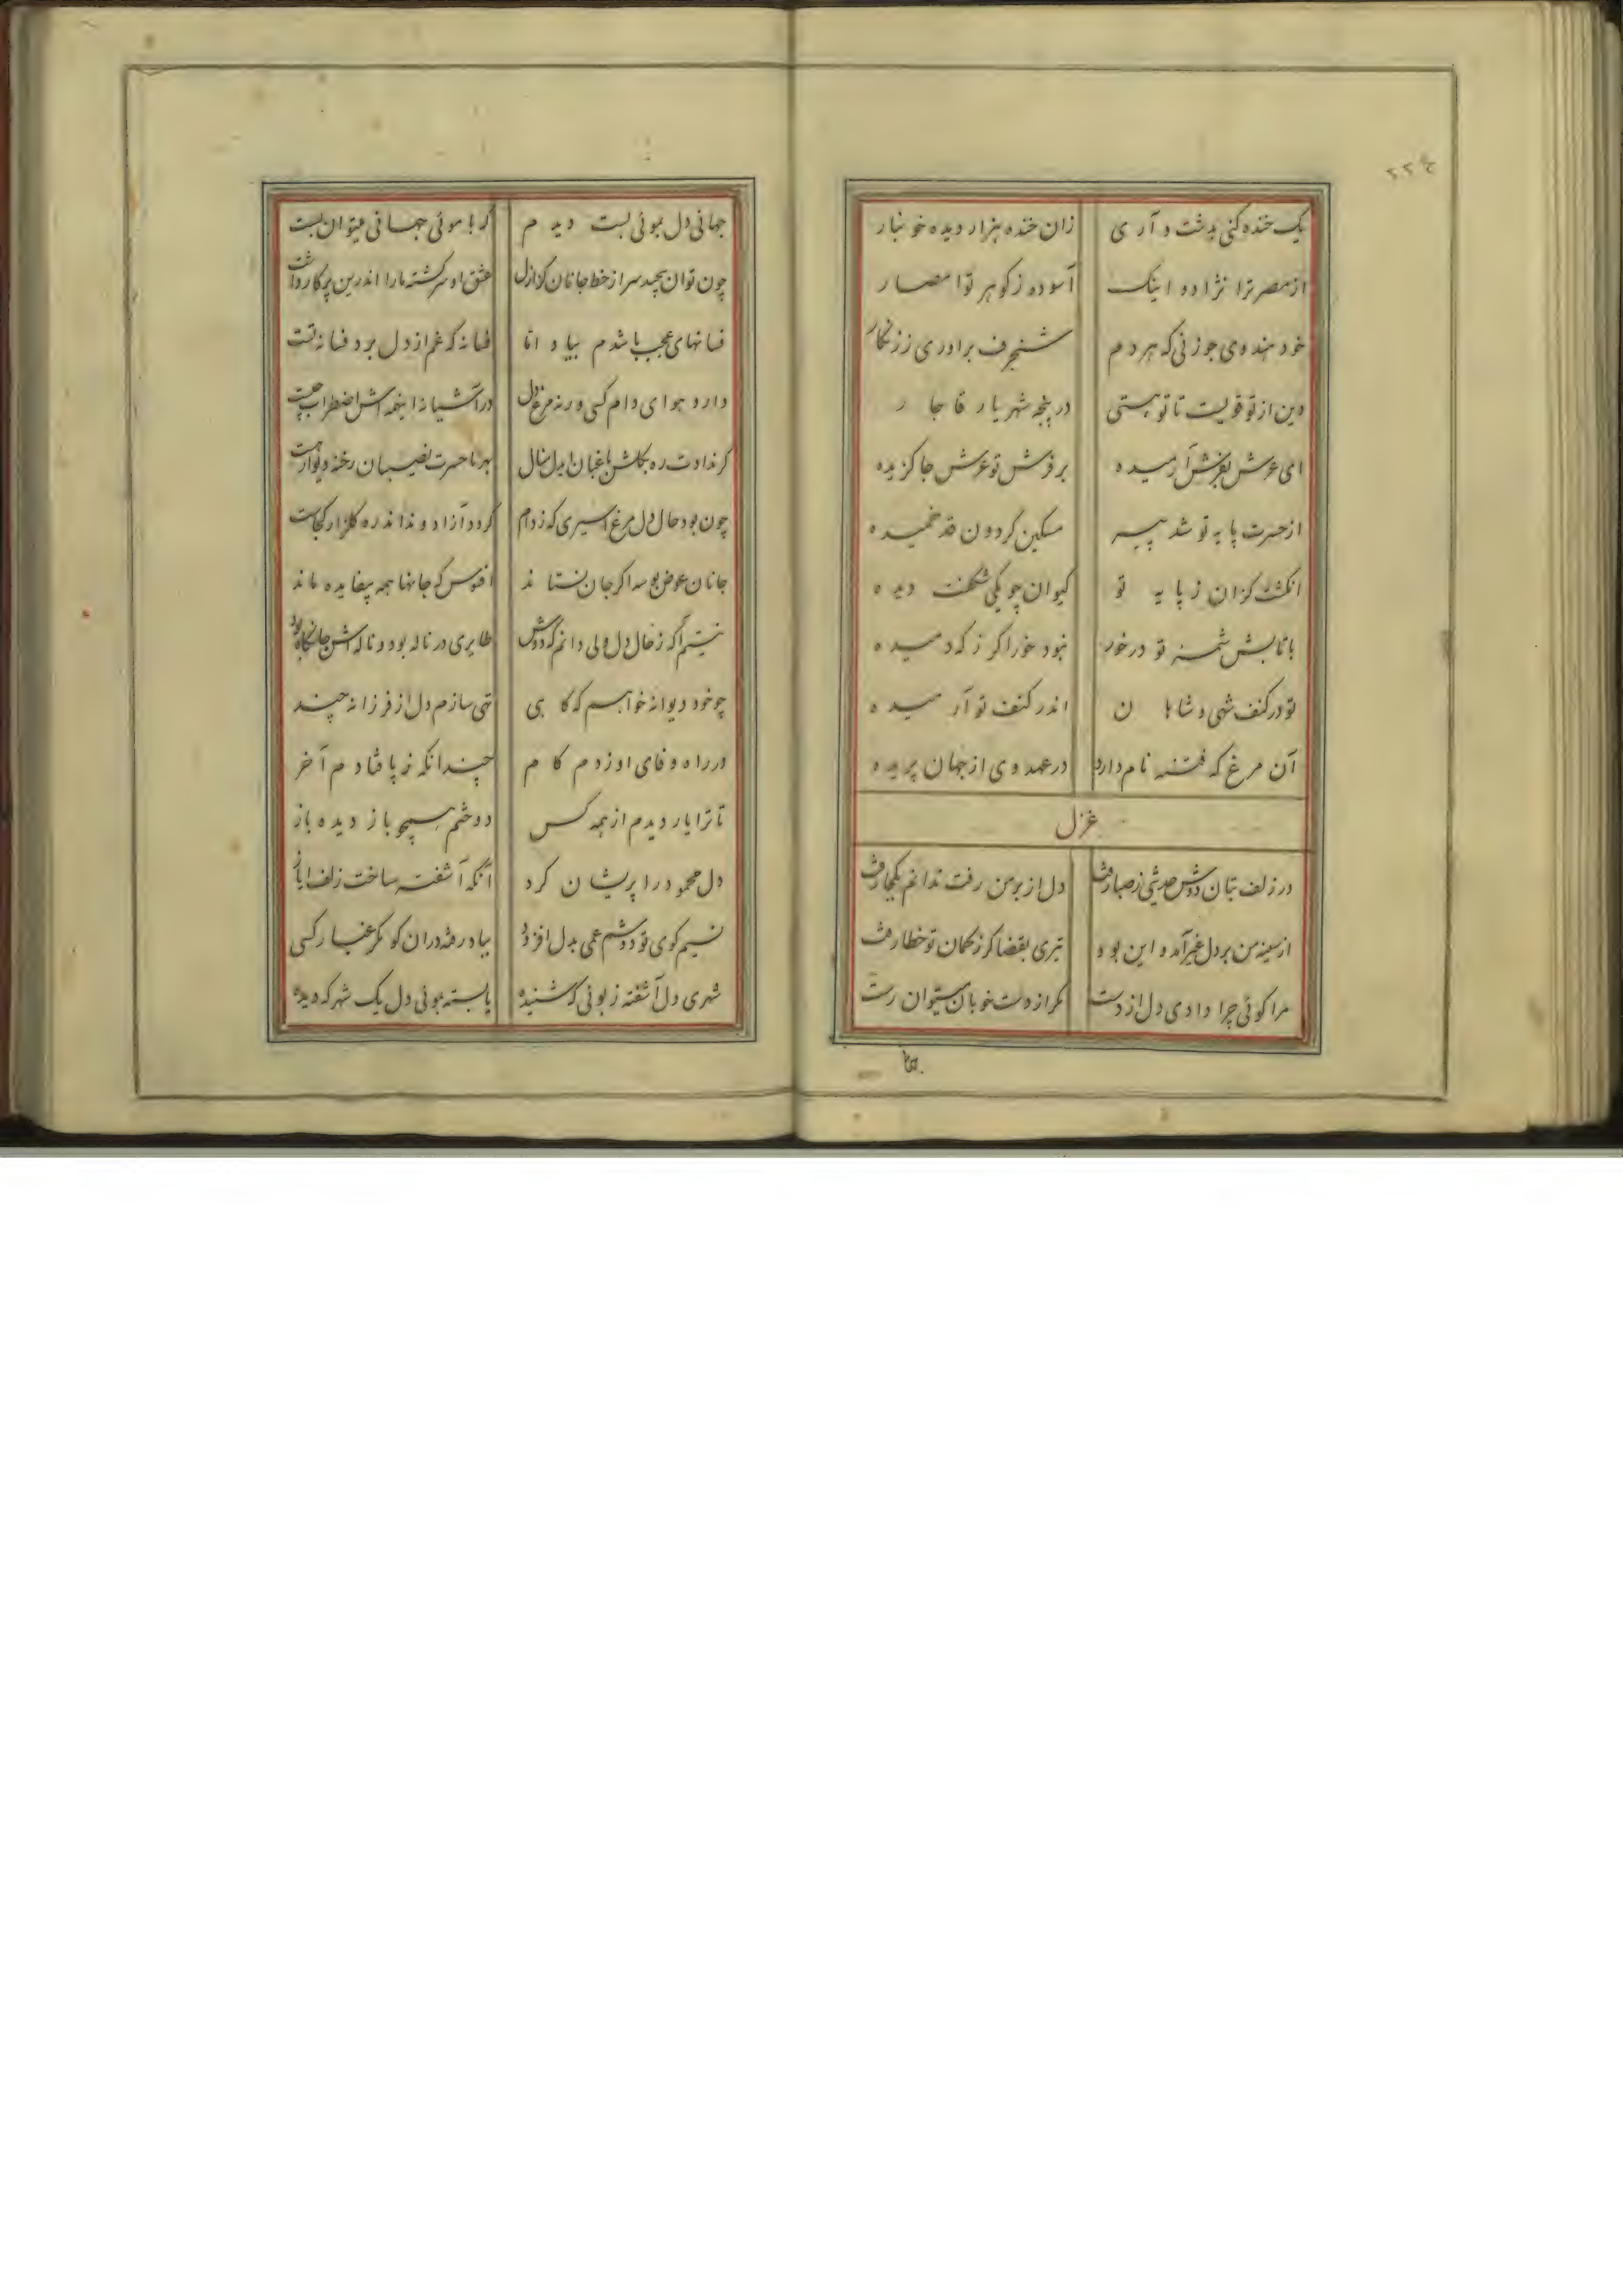 ۲۲۴
یک خنده کنی بدشت و آری زان خنده هزار دیده خونبار
از مصر ترا نژاد و اینک آسوده ز گوهر تو امصار
خود هندوی جوزنی که هر دم شنجرف براوری ز زنگار
دین از تو قویست تا تو هستی در پنجه شهریار قاجار
ای عرش بفرشت آرمیده بر فرش تو عرش جا گزیده
از حسرت پایه تو شد پیر مسکین گردون قد خمیده
انگشت گزان ز پایه تو کیوان چو یکی شگفت دیده
با تابش شمسه تو در خور نبود خور اگر ز که دمیده
تو در کنف شهی و شاهان اندر کنف تو آرمیده
آن مرغ که فتنه نام دارد در عهد وی از جهان پریده
غزل
در زلف بتان دوش حدیثی ز صبا رفت دل از بر من رفت ندانم بکجا رفت
از سینه من بر دل غیر آمد و این بود تیری بقضا کز کمان تو خطا رفت
مرا گوئی چرا دادی دل از دست مگر از دست خوبان میتوان رست
جهانی دل بموئی بست دیدم که با موئی جهانی میتوان بست
چون توان پیچید سر از خط جانان کز ازل عشق او سرگشته ما را اندرین پرگار داشت
فسانهای عجب باشدم بیاد اما فسانه که غم از دل برد فسانه تست
دارد هوای دام کسی ورنه مرغ دل در آشیانه اینهمه اش اضطراب چیست
گر ندادت ره بگلشن باغبان ایدل منال بهر ما حسرت نصیبان رخنه دیوار هست
چون بود حال دل مرغ اسیری که ز دام گردد آزاد و نداند ره گلزار کجاست
جانان عوض بوسه اگر جان نستاند افسوس که جانها همه بیفایده ماند
نیستم آگه ز حال دل ولی دانم که دوش طایری در ناله بود و ناله اش جانکاه بود
چو خود دیوانه خواهم که گاهی تهی سازم دل از فرزانه چند
در راه وفای او زدم گام چندانکه ز پا فتادم آخر
تا ترا یار دیدم از همه کس دوختم همچو باز دیده باز
دل محمود را پریشان کرد آنکه آشفته ساخت زلف ایاز
نسیم کوی تو دوشم غمی بدل افزود بباد رفته دران کو مگر غبار کسی
شهری دل آشفته ز بوئی که شنیده یا بسته بموئی دل یک شهر که دیده